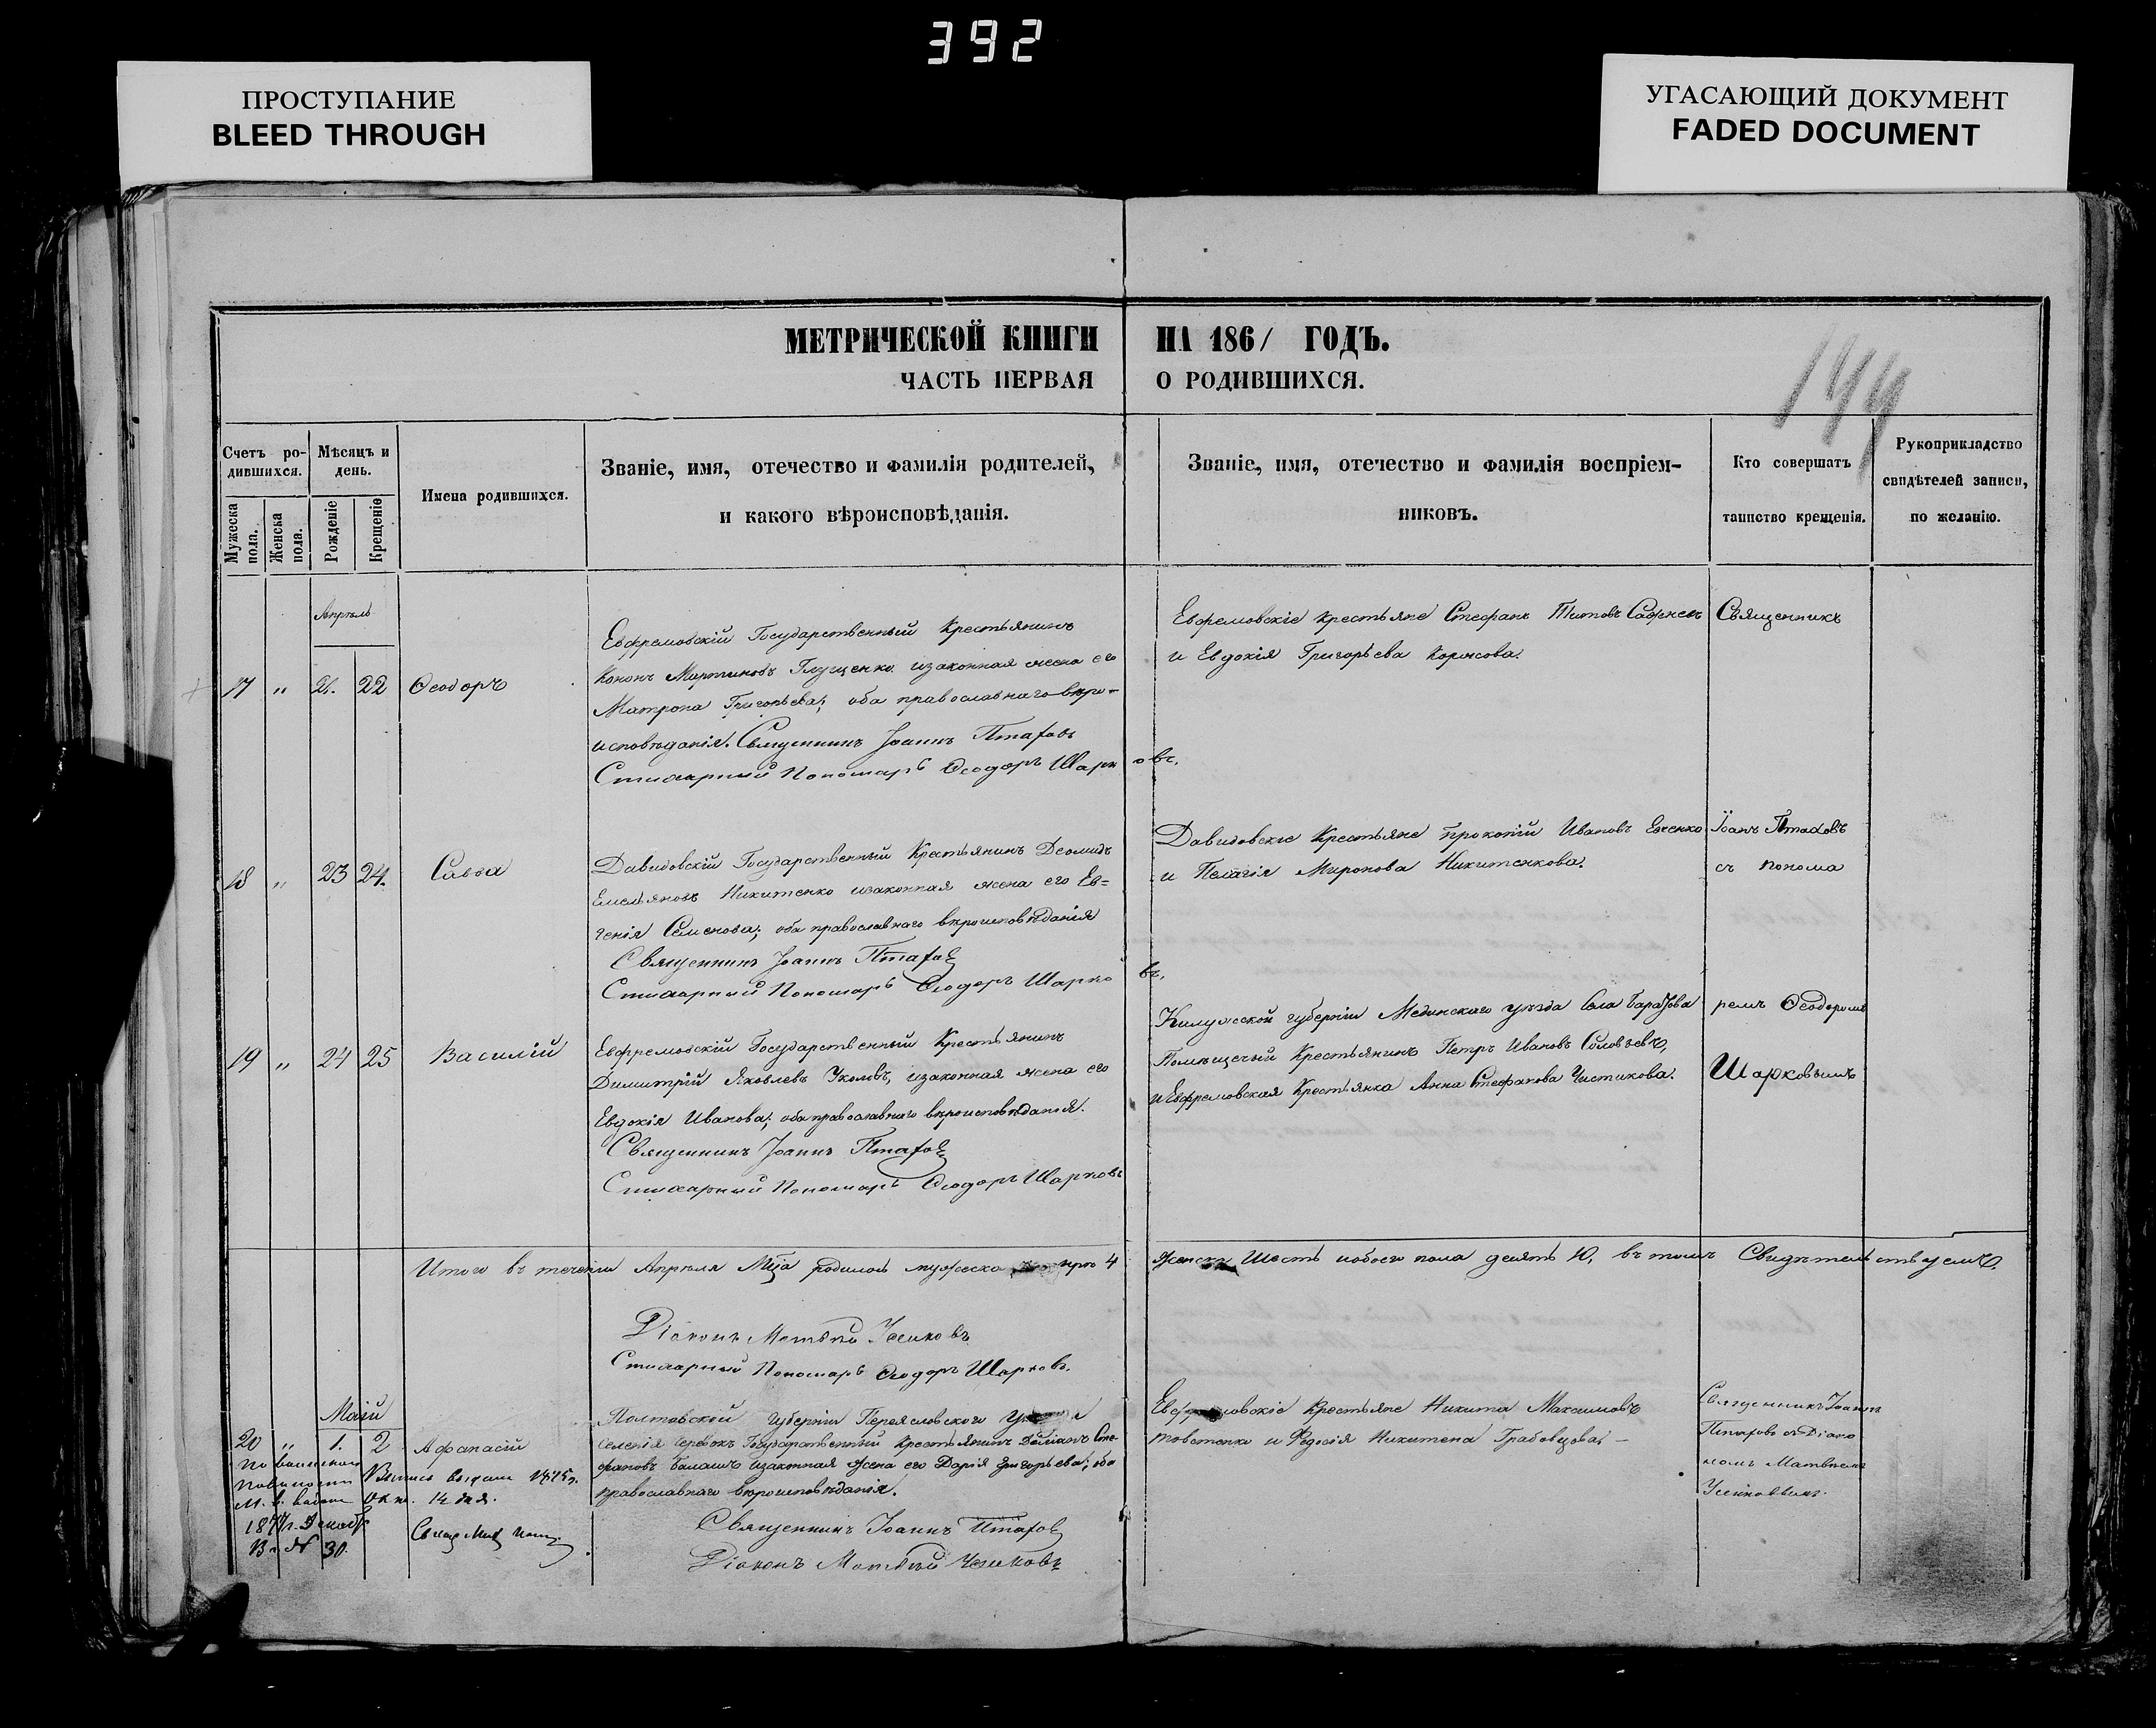 392
ПРОСТУПАНИЕ
BLEED THROUGH
УГАСАЮЩИЙ ДОКУМЕНТ
FADED DOCUMENT
МЕТРИЧЕСКОЙ КНИГИ НА 1861 ГОДЪ.
ЧАСТЬ ПЕРВАЯ О РОДИВШИХСЯ.
144
Счетъ ро-
дившихся.
Мужеска
пола.
Женска
пола.
Мѣсяцъ и
день.
Рожденіе
Крещеніе
Имена родившихся.
Званіе, имя, отечество и фамилія родителей,
и какого вѣроисповѣданія.
Званіе, имя, отечество и фамилія воспріем-
никовъ.
Кто совершатъ
таинство крещенія.
Рукоприкладство
свидѣтелей записи,
по желанію.
Апрѣль
17 " 21. 22 Ѳеодоръ
Евфремовскій Государственный Крестьянинъ
Кононъ Мартиновъ Глущенко изаконная жена его
Матрона Григорьева; оба православнаго вѣро-
исповѣданія. Священникъ Іоаннъ Птаховъ
Стихарный Пономарь Ѳеодоръ Шарковъ.
Евфремовскіе крестьяне Стефанъ Титовъ
и Евдокія Григорьева
Священникъ
18 " 23 24. Савва
Давидовскій Государственный Крестьянинъ Деомидъ
Емельяновъ Никитенко изаконная жена его Ев=
генія Семенова; оба православнаго вѣроисповѣданія
Священникъ Іоаннъ Птаховъ
Стихарный Пономарь Ѳеодоръ Шарковъ.
Давидовскіе Крестьяне Прокопій Ивановъ Евченко
и Пелагія Миронова Никитенкова.
Іоанъ Птаховъ
съ понома
19 " 24 25 Василій
Евфремовскій Государственный Крестьянинъ
Димитрій Яковлевъ Уколовъ, изаконная жена его
Евдокія Иванова; оба православнаго вѣроисповѣданія.
Священникъ Іоаннъ Птаховъ
Стихарный Пономарь Ѳеодоръ Шарковъ
Калужской губерніи Мединскаго уѣзда Села
Помѣщичій Крестьянинъ Петръ Ивановъ Соловьевъ,
и Евфремовская Крестьянка Анна Стефанова Чистикова.
ремъ Ѳеодоромъ
Шарковымъ
Итого въ теченіи Апрѣля Мца родилось мужеска 4 женска шесть иобоего пола десять 10, въ томъ Свидѣтельствуемъ.
Діаконъ Матвѣй
Стихарный Пономарь Ѳеодоръ Шарковъ.
Маій
20 " 1. 2 Афанасій
Полтавской губерніи Переясловского
селенія Государственный крестьянинъ Даміанъ Сте-
фановъ изаконная жена его Дарія Григорьева; оба
православнаго вѣроисповѣданія.
Священникъ Іоаннъ Птаховъ
Діаконъ Матвѣй
крестьяне Никита Максимовъ
и Федосія Никитена Грабовцова; –
Священникъ Іоаннъ
Птаховъ съ Діако
номъ Матвѣемъ
По воинской
повинности
Выпись выдана 1875г.
30.